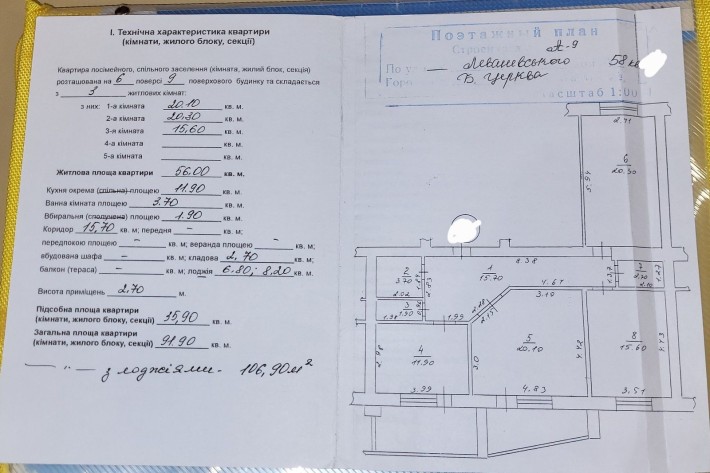 І. Технічна характеристика квартири
(кімнати, жилого блоку, секції)
Квартира посімейного, спільного заселення (кімната, жилий блок, секція)
розташована на 6 поверсі 9 поверхового будинку та складається
з 3 житлових кімнат:
з них: 1-а кімната 20.10 кв. м.
2-а кімната 20.30 кв. м.
3-я кімната 15,60 кв. м.
4-а кімната кв. м.
5-а кімната кв. м.
Житлова площа квартири 56.00 кв. м.
Кухня окрема (спільна) площею 11.90 кв. м.
Ванна кімната площею 3.70 кв. м.
Вбиральня (сполучена) площею 1.90 кв. м.
Коридор 15,70 кв. м; передня - кв. м;
передпокою площею - кв. м; веранда площею - кв. м;
вбудована шафа - кв. м; кладова 2,70 кв. м;
балкон (тераса) - кв. м; лоджія 6.80; 8,20 кв. м.
Висота приміщень 2,70 м.
Підсобна площа квартири
(кімнати, жилого блоку, секції) 35,90 кв. м.
Загальна площа квартири
(кімнати, жилого блоку, секції) 91.90 кв. м.
— " — з лоджіями - 106,90м²
Поэтажный план
А-9
По Левашевського 58 кв
Гор Б. Церква
масштаб 1:
2.71
6
20.30
8.38
1
15.70
2
3.70
2.02
2.83
3
1.90
1.99
4.61
3.10
7
2.70
4
11.90
3.99
3.0
5
20.10
4.42
4.83
8
15.60
4.43
3.51